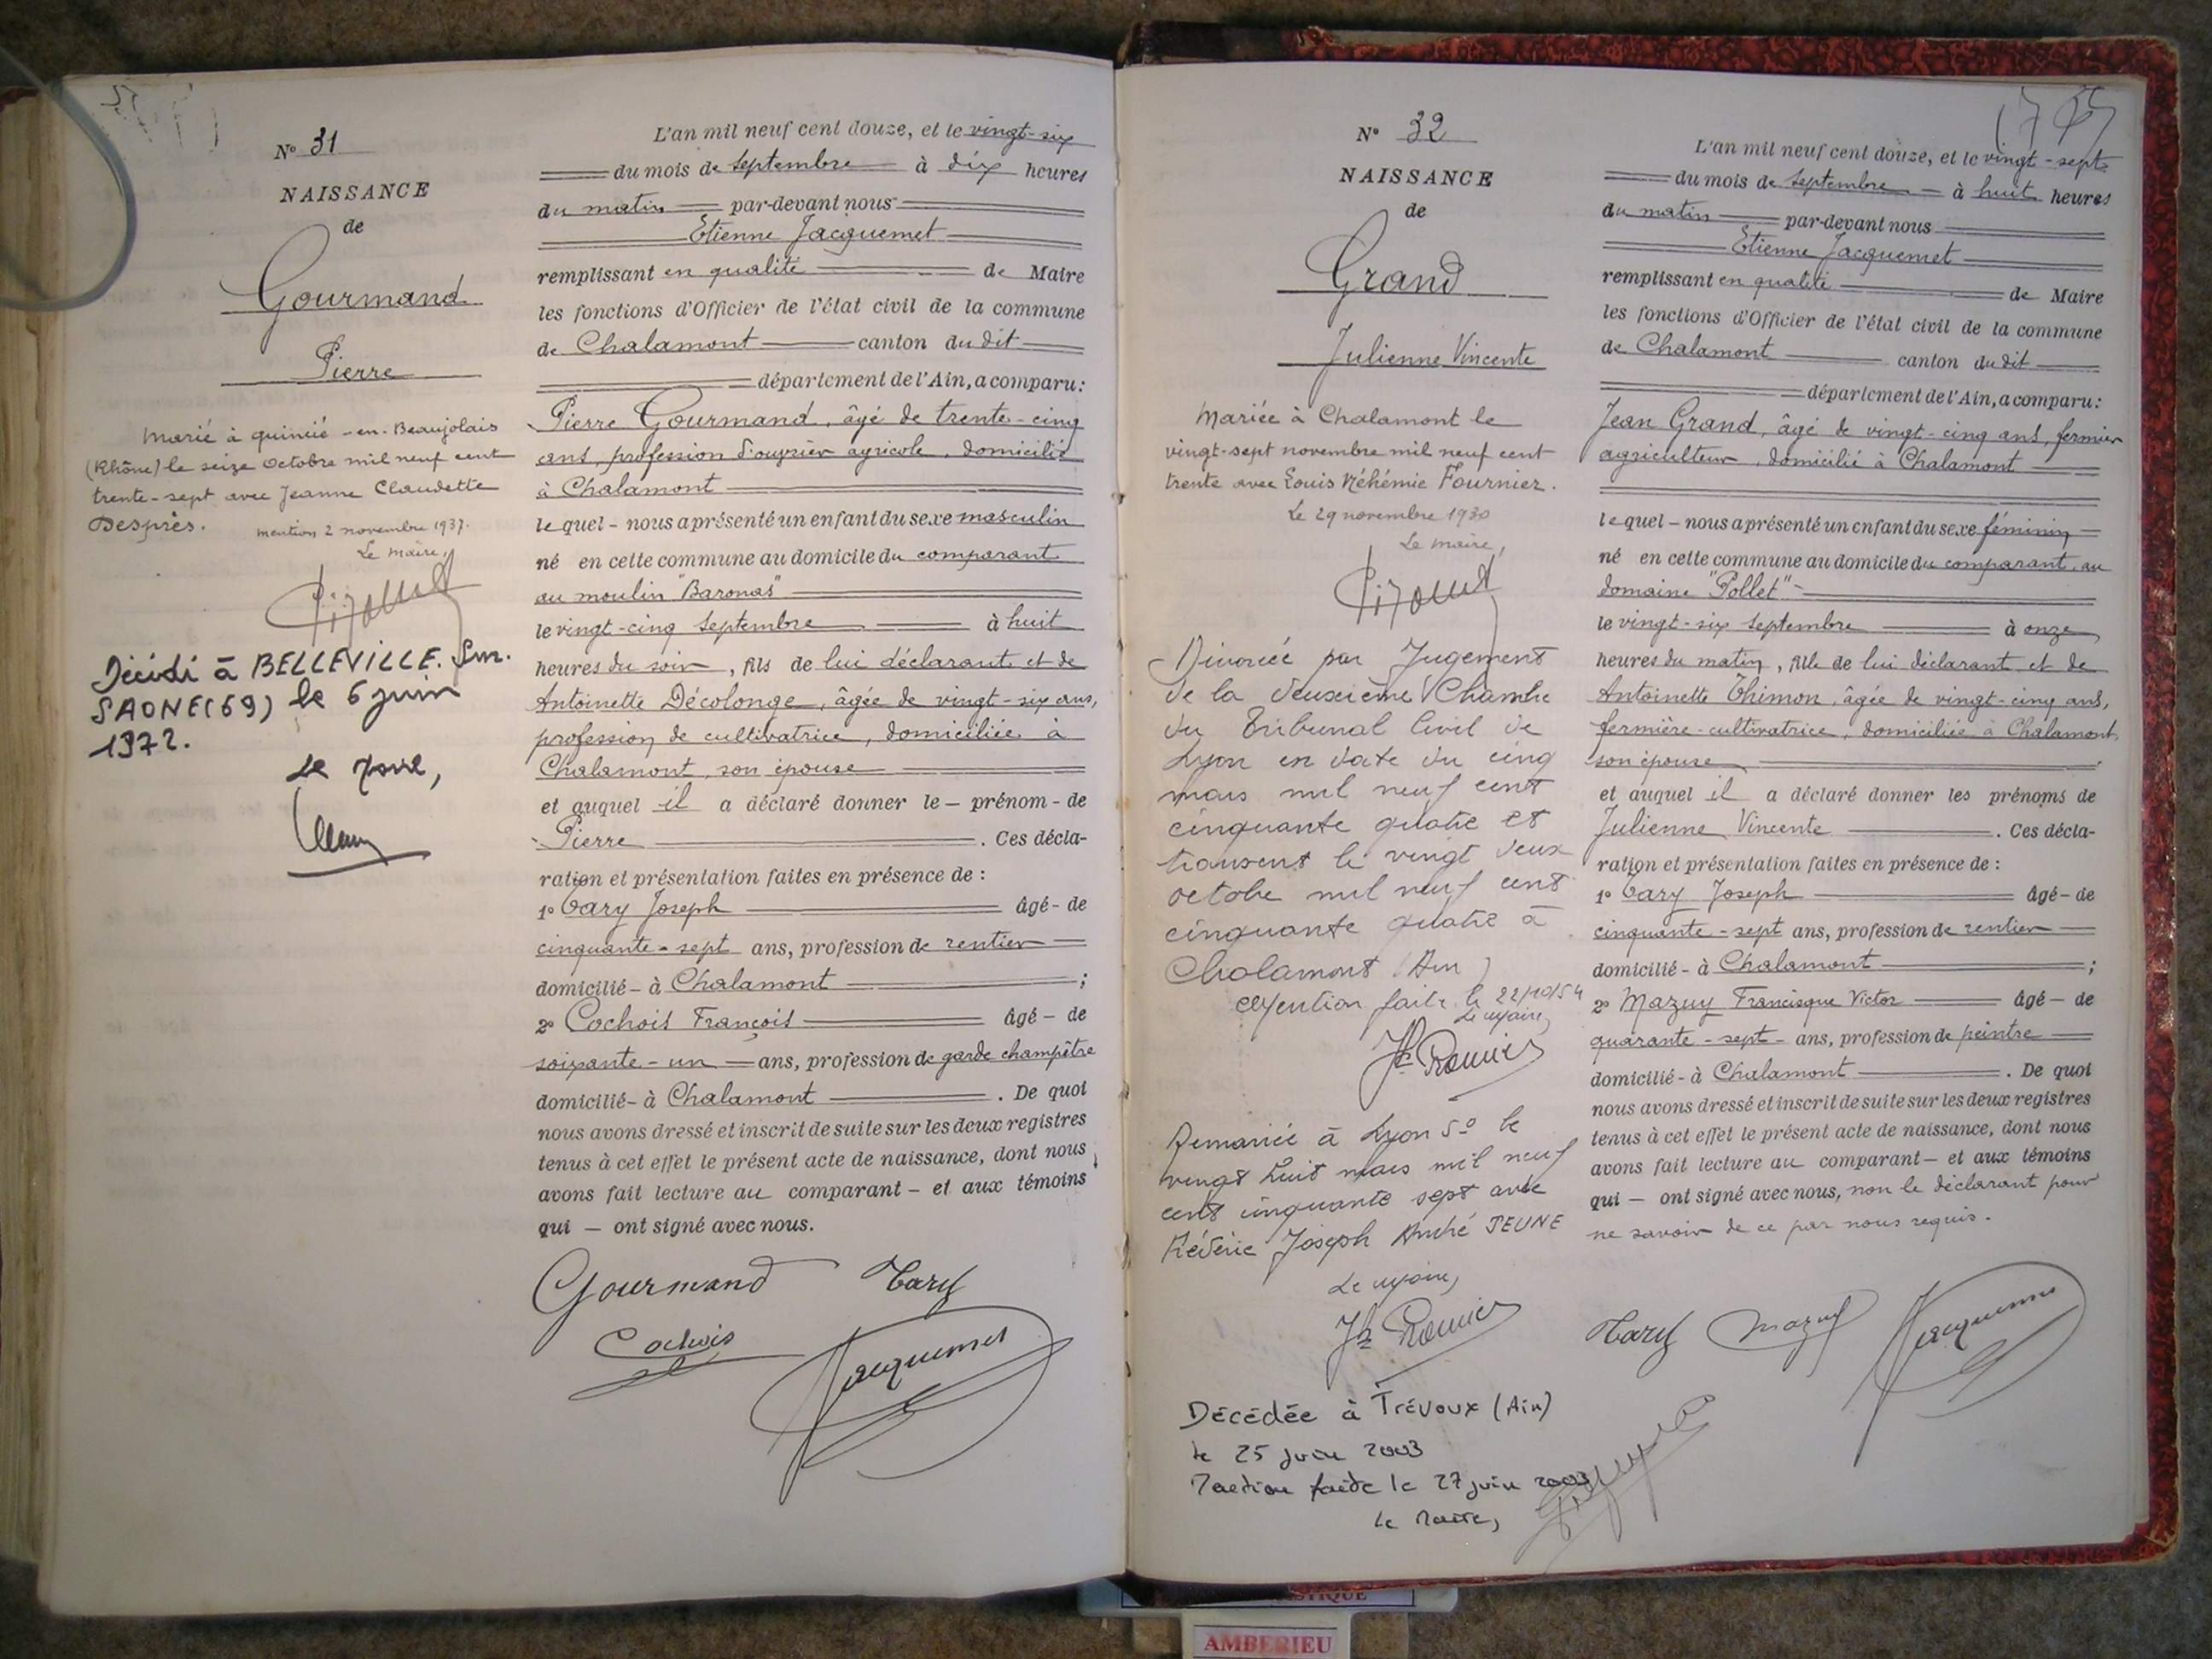 N° 31
NAISSANCE
de
Gourmand
Pierre
Marié à Quincié-en-Beaujolais
(Rhône) le seize octobre mil neuf cent
trente-sept avec Jeanne Claudette
Desprès.
mention 2 novembre 1937.
Le maire,
Décédé à BELLEVILLE. Sur.
SAONE (69) le 6 juin
1972.
Le Maire,
L'an mil neuf cent douze, et le vingt-six
du mois de septembre à dix heures
du matin par-devant nous
Etienne Jacquemet
remplissant en qualité de Maire
les fonctions d'Officier de l'état civil de la commune
de Chalamont canton du dit
département de l'Ain, a comparu:
Pierre Gourmand, âgé de trente-cinq
ans, profession d'ouvrier agricole, domicilié
à Chalamont
lequel - nous a présenté un enfant du sexe masculin
né en cette commune au domicile du comparant
au moulin "Baronas"
le vingt-cinq septembre à huit
heures du soir, fils de lui déclarant et de
Antoinette Décolonge, âgée de vingt-six ans,
profession de cultivatrice, domiciliée à
Chalamont, son épouse
et auquel il a déclaré donner le - prénom - de
Pierre . Ces décla-
ration et présentation faites en présence de :
1° Tary Joseph âgé - de
cinquante-sept ans, profession de rentier
domicilié - à Chalamont ;
2° Cochois François âgé - de
soixante-un ans, profession de garde champêtre
domicilié - à Chalamont . De quoi
nous avons dressé et inscrit de suite sur les deux registres
tenus à cet effet le présent acte de naissance, dont nous
avons fait lecture au comparant - et aux témoins
qui - ont signé avec nous.
Gourmand Tary
Cochois Jacquemet
N° 32
NAISSANCE
de
Grand
Julienne Vincente
Mariée à Chalamont le
vingt-sept novembre mil neuf cent
trente avec Louis Néhémie Fournier.
Le 29 novembre 1930
Le maire,
Divorcée par Jugement
de la deuxième Chambre
du Tribunal Civil de
Lyon en date du cinq
mars mil neuf cent
cinquante quatre et
transcrit le vingt deux
octobre mil neuf cent
cinquante quatre à
Chalamont (Ain)
Mention faite le 22/10/54
Le Maire,
Remariée à Lyon 5° le
vingt huit mars mil neuf
cent cinquante sept avec
Frédéric Joseph André JEUNE
Le Maire,
Décédée à Trévoux (Ain)
le 25 juin 2003
Mention faite le 27 juin 2003
Le Maire,
L'an mil neuf cent douze, et le vingt-sept
du mois de septembre - à huit heures
du matin par-devant nous
Etienne Jacquemet
remplissant en qualité de Maire
les fonctions d'Officier de l'état civil de la commune
de Chalamont canton du dit
département de l'Ain, a comparu:
Jean Grand, âgé de vingt-cinq ans, fermier
agriculteur, domicilié à Chalamont
lequel - nous a présenté un enfant du sexe féminin
né en cette commune au domicile du comparant, au
domaine "Pollet"
le vingt-six septembre à onze
heures du matin, fille de lui déclarant et de
Antoinette Thimon, âgée de vingt-cinq ans,
fermière-cultivatrice, domiciliée à Chalamont,
son épouse
et auquel il a déclaré donner les prénoms de
Julienne Vincente . Ces décla-
ration et présentation faites en présence de :
1° Tary Joseph âgé - de
cinquante-sept ans, profession de rentier
domicilié - à Chalamont ;
2° Mazuy Francisque Victor âgé - de
quarante-sept - ans, profession de peintre
domicilié - à Chalamont . De quoi
nous avons dressé et inscrit de suite sur les deux registres
tenus à cet effet le présent acte de naissance, dont nous
avons fait lecture au comparant - et aux témoins
qui - ont signé avec nous, non le déclarant pour
ne savoir de ce par nous requis.
Tary Mazuy Jacquemet
AMBERIEU